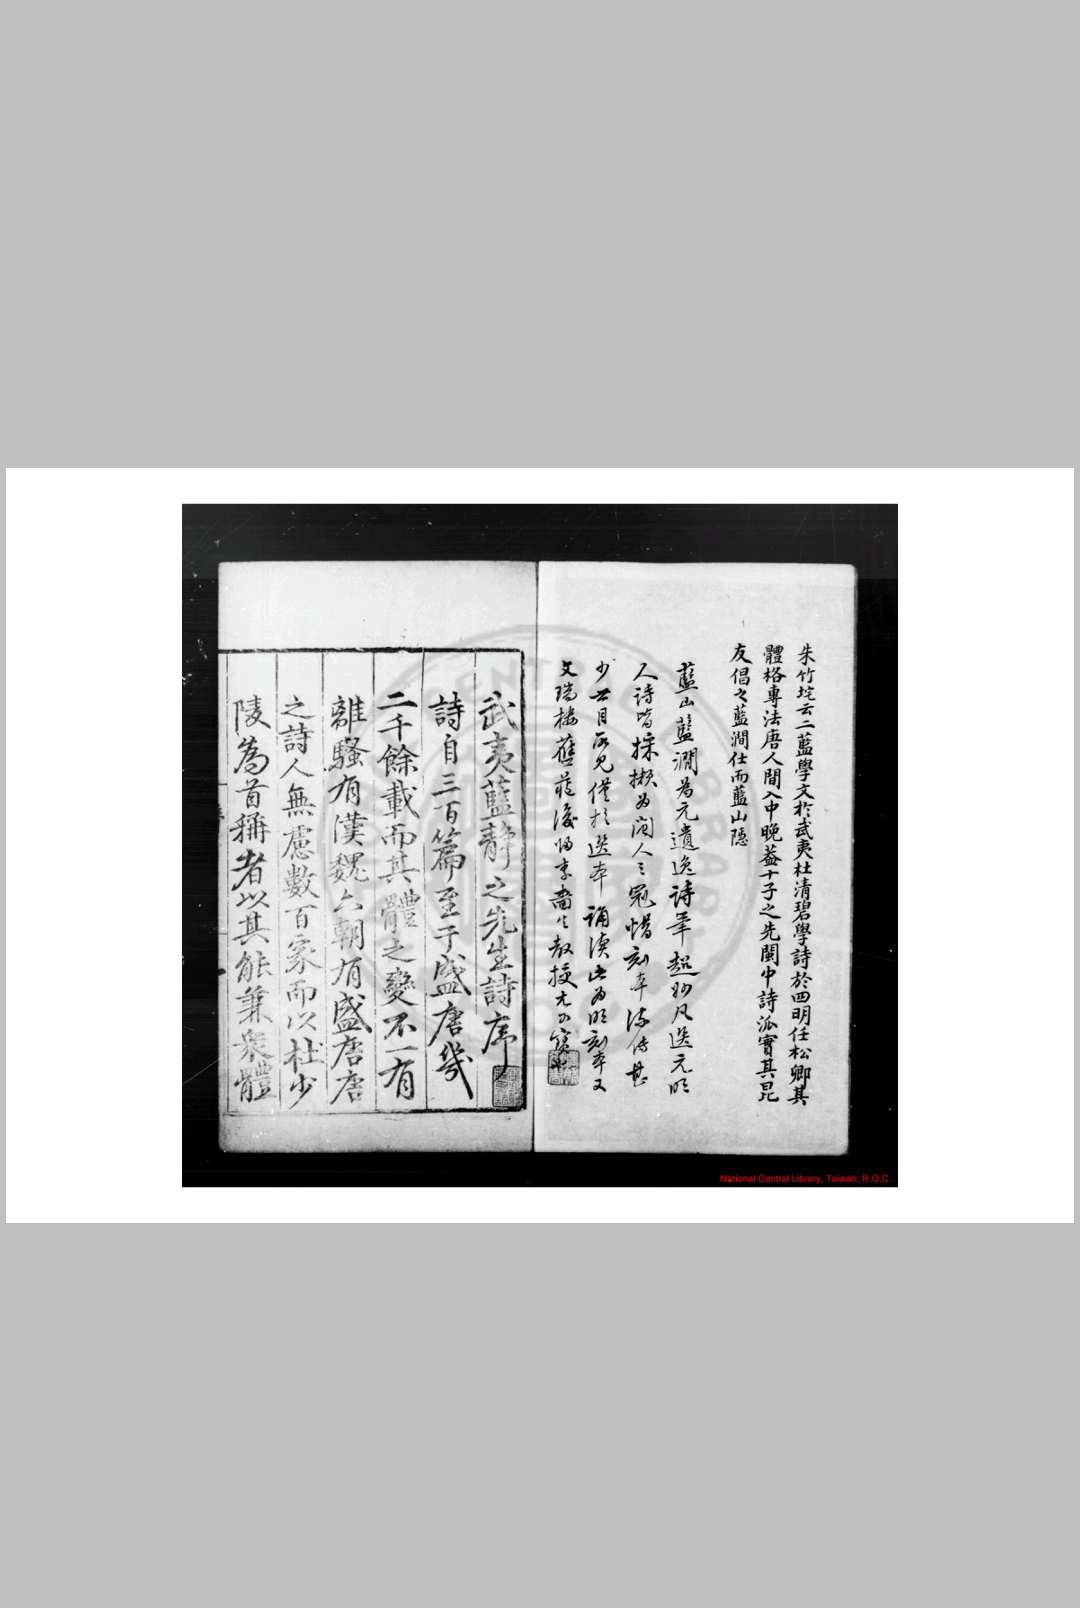 朱竹垞云二藍學文於武夷杜清碧學詩於四明任松卿其
體格專法唐人間入中晚蓋十子之先閩中詩派實其昆
友倡之藍澗仕而藍山隱
藍山藍澗為元遺逸詩筆超妙凡选元明
人詩皆採擷为闽人之冠惜刻本流传甚
少世目所見僅於选本誦读此为明刻本又
文瑞楼舊蔵後归李嗇生教授尤可寳也
武夷藍静之先生詩序
詩自三百篇至于盛唐幾
二千餘載而其體之變不一有
離騷有漢魏六朝有盛唐唐
之詩人無慮數百家而以杜少
陵為首稱者以其能兼衆體
NATIONAL CENTRAL LIBRARY
National Central Library, Taiwan, R.O.C.